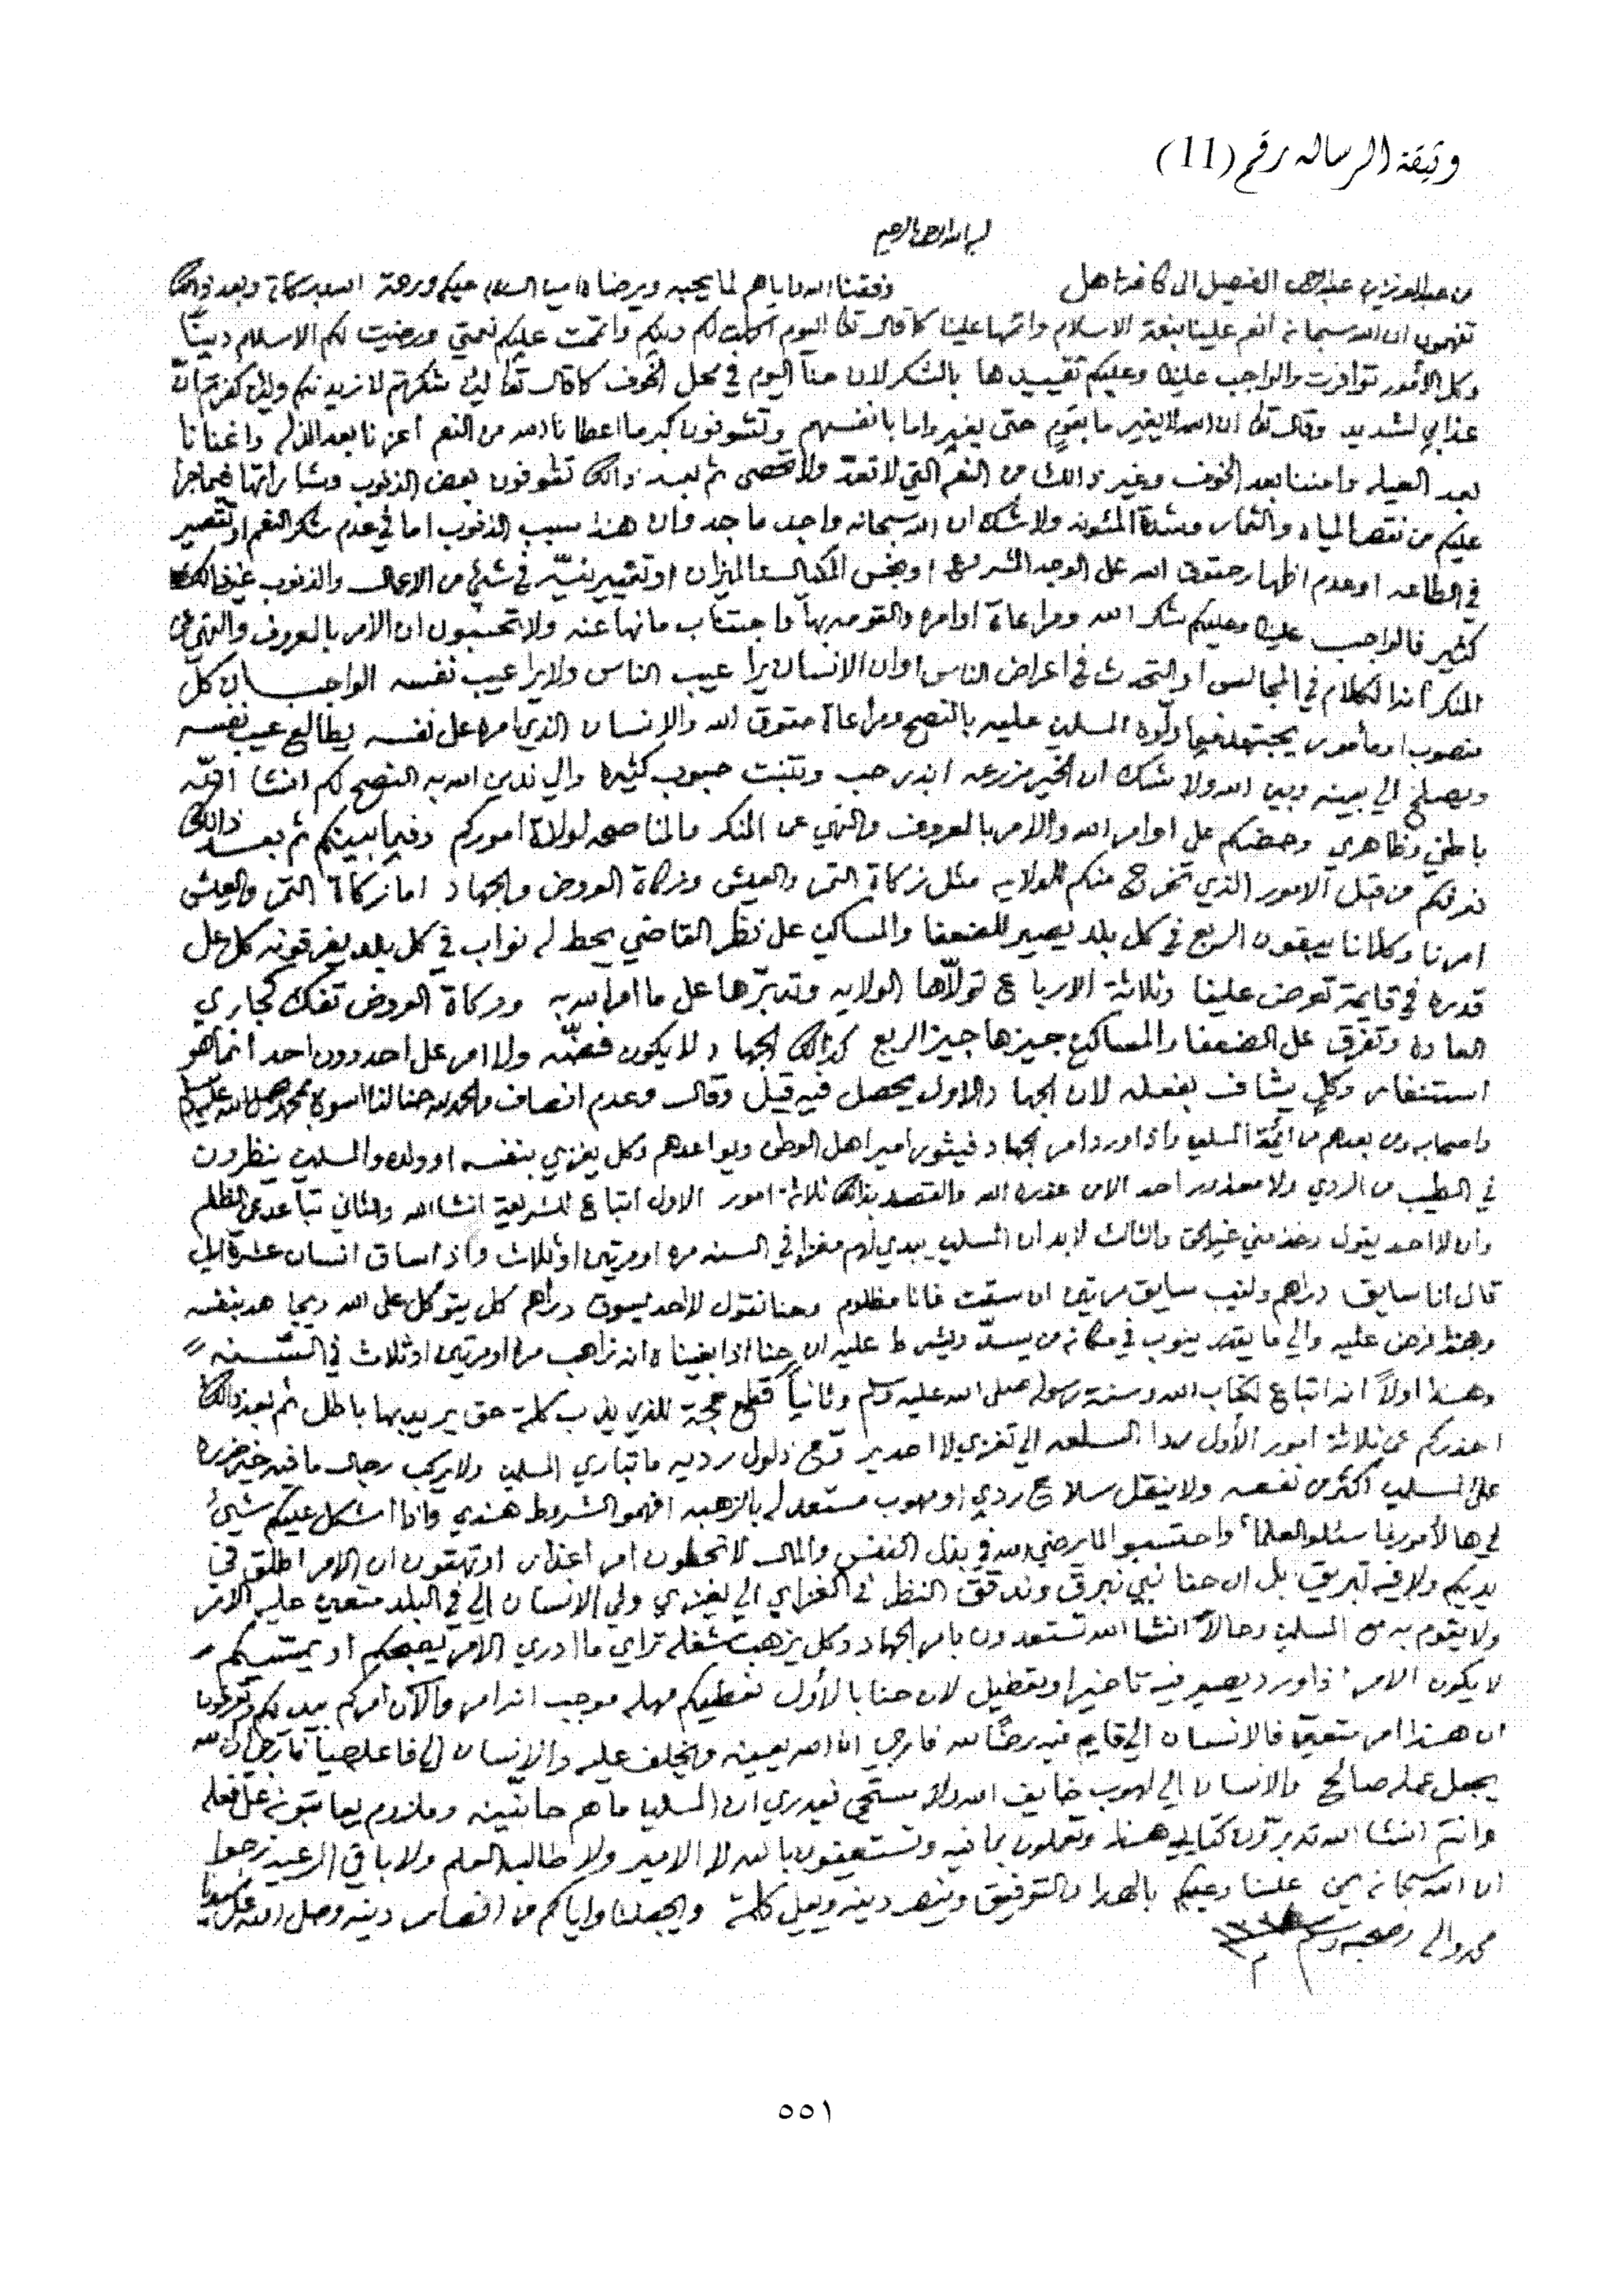 وثيقة الرساله رقم (11)
بسم الله الرحمن الرحيم
من عبد العزيز بن عبد الرحمن الفيصل الى كافة اهل وفقنا الله واياهم لما يحبه ويرضاه امين السلام عليكم ورحمة الله وبركاته وبعد ذالك
تفهمون ان الله سبحانه انعم علينا بنعمة الاسلام واتمها علينا كما قال تعالى اليوم اكملت لكم دينكم واتممت عليكم نعمتي ورضيت لكم الاسلام دينًا
وكل الأمور توافرت والواجب علينا وعليكم تقييدها بالشكر لان حنا اليوم في محل الخوف كما قال تعالى لئن شكرتم لازيدنكم ولئن كفرتم انّ
عذابي لشديد وقال تعالى ان الله لا يغير ما بقوم حتى يغيروا ما بانفسهم وتشوفون كبر ما اعطانا الله من النعم أعزنا بعد الذل واغنانا
بعد العيله وامننا بعد الخوف وغير ذالك من النعم التي لا تعدّ ولا تحصى ثم بعد ذالك تشوفون بعض الذنوب وشاراتها فيما جرا
عليكم من نقص المياه والثمار وشدة المئونه ولا شك ان الله سبحانه واجد ماجد وان هذا سبب الذنوب اما في عدم شكر النعم او تقصير
في الطاعه او عدم اظهار حقوق الله على الوجه الشرعي او بخس المكيال والميزان او تغيير نيّه في شيء من الاعمال والذنوب غير ذالك
كثير فالواجب علينا وعليكم شكر الله ومراعاة اوامره والقومه بها واجتناب ما نها عنه ولا تحسبون ان الامر بالمعروف والنهي عن
المنكر انه الكلام في المجالس او التحدث في اعراض الناس او ان الانسان يرا عيب الناس ولا يرا عيب نفسه الواجب ان كلّ
منصوب او مأمور يجتهد فيما ولّوه المسلمين عليه بالنصح ومراعاة حقوق الله والانسان الذي امره على نفسه يطالع عيب نفسه
ويصلح الي بينه وبين الله ولا شك ان الخير مزرعه ابذر حب وتنبت حبوب كثيره والي ندين الله به النصح لكم انشا الله
باطني وظاهري وحضكم على اوامر الله والامر بالمعروف والنهي عن المنكر والمناصحه لولاة اموركم وفيما بينكم ثم بعد ذالك
نعرفكم من قبل الامور الذي تخرج منكم للولايه مثل زكاة التمر والعيش وزكاة العروض والجهاد اما زكاة التمر والعيش
امرنا وكلانا يبقون الربع في كل بلد يصير للضعفا والمساكين على نظر القاضي يحط له نواب في كل بلد يفرقونه كل على
قدره في قايمة تعرض علينا وثلاثة الارباع تولّاها الولايه وتدبّرها على ما امر الله به وزكاة العروض تفك كجاري
العاده وتفرق على الضعفا والمساكين جيزها جيز الربع كذالك الجهاد لا يكون فضّه ولا امر على احد دون احد انما هو
استنفار وكل يشاف بفعله لان الجهاد الاول يحصل فيه قيل وقال وعدم انصاف والحمد لله حنا لنا اسوه بمحمد صلى الله عليه وسلم
واصحابه ومن بعدهم من ائمة المسلمين واذا ورد امر الجهاد فيثور امير اهل الوطن ويواعدهم وكل يغزي بنفسه او ولده والمسلمين ينظرون
في الطيب من الردي ولا معذور أحد الا من عذره الله والقصد بذالك ثلاثة امور الاول اتباع للشريعة انشا الله والثاني تباعد عن الظلم
وان لا احد يقول وخذ مني غير الحق والثالث لابد ان المسلمين يبدي لهم مغزا في السنه مره او مرتين او ثلاث واذا ساق انسان عشرة ايال
قال انا سايق دراهم ولنيب سايق مرتين ان سقت فانا مظلوم وحنا نقول لا أحد يسوق دراهم كل يتوكل على الله ويجاهد بنفسه
وهذا فرض عليه والي ما يقدر ينوب في مكانه من يسدّ ويشرط عليه ان حنا اذا بغيناه انه نراهب مره او مرتين او ثلاث في السنه
وهذا اولاً انه اتباع لكتاب الله وسنة رسوله صلى الله عليه وسلم وثانياً قطع حجة للذي يذب كلمة حق يريد بها باطل ثم بعد ذالك
احذركم عن ثلاثة امور الأول ردا السلعه الي تغزي لا احد ير وّح ذلول رديه ما تباري المسلمين ولا يركب رجال ما فيه خير ضرره
على المسلمين اكثر من نفعه ولا ينقل سلاح ردي او مهوب مستعد له بالزهبه افهموا الشروط هذي واذا اشكل عليكم شيء
في ها الأمور فاسئلو العلماء واحتسبوا لما يرضي الله في بذل النفس والمال لا تحطون امر اعذار او تهقون ان الامر اطلق في
يديكم ولا فيه تبريق بل ان حنا نبي نبرق وندقق النظر في الغزاي الي يغزي ولي الانسان الي في البلد متعين عليه الامر
ولا يقوم به مع المسلمين وحالاً انشا الله تستعدون بامر الجهاد وكل يزهب شغله تراي ما ادري الامر يصبحكم او يمسيكم
لا يكون الامر اذا ورد يصير فيه تاخير او تعطيل لان حنا بالأول نعطيكم مهله موجب انذار والآن أمركم بيدكم وتعرفون
ان هذا امر متعين فالانسان الي قايم فيه رضًا لله فارجي ان الله يعينه ويخلف عليه والانسان الي فاعل حياً فارجي ان الله
يجعل عمله صالح والانسان الي لهوب خايف الله ولا مستحي فيدري ان المسلمين ما هم حاينينه وملزوم يعاقبونه على فعله
وانتم انشا الله تدبرّون كتابي هذا وتعملون بما فيه وتستعينون بالله لا الامير ولا طالبة العلم ولا باقي الرعيه نرجوا
ان الله سبحانه يمن علينا وعليكم بالهدا والتوفيق وينصر دينه ويعلي كلمته ويجعلنا واياكم من انصار دينه وصلى الله على سيدنا
محمد والى وصحبه وسلم
٥٥١